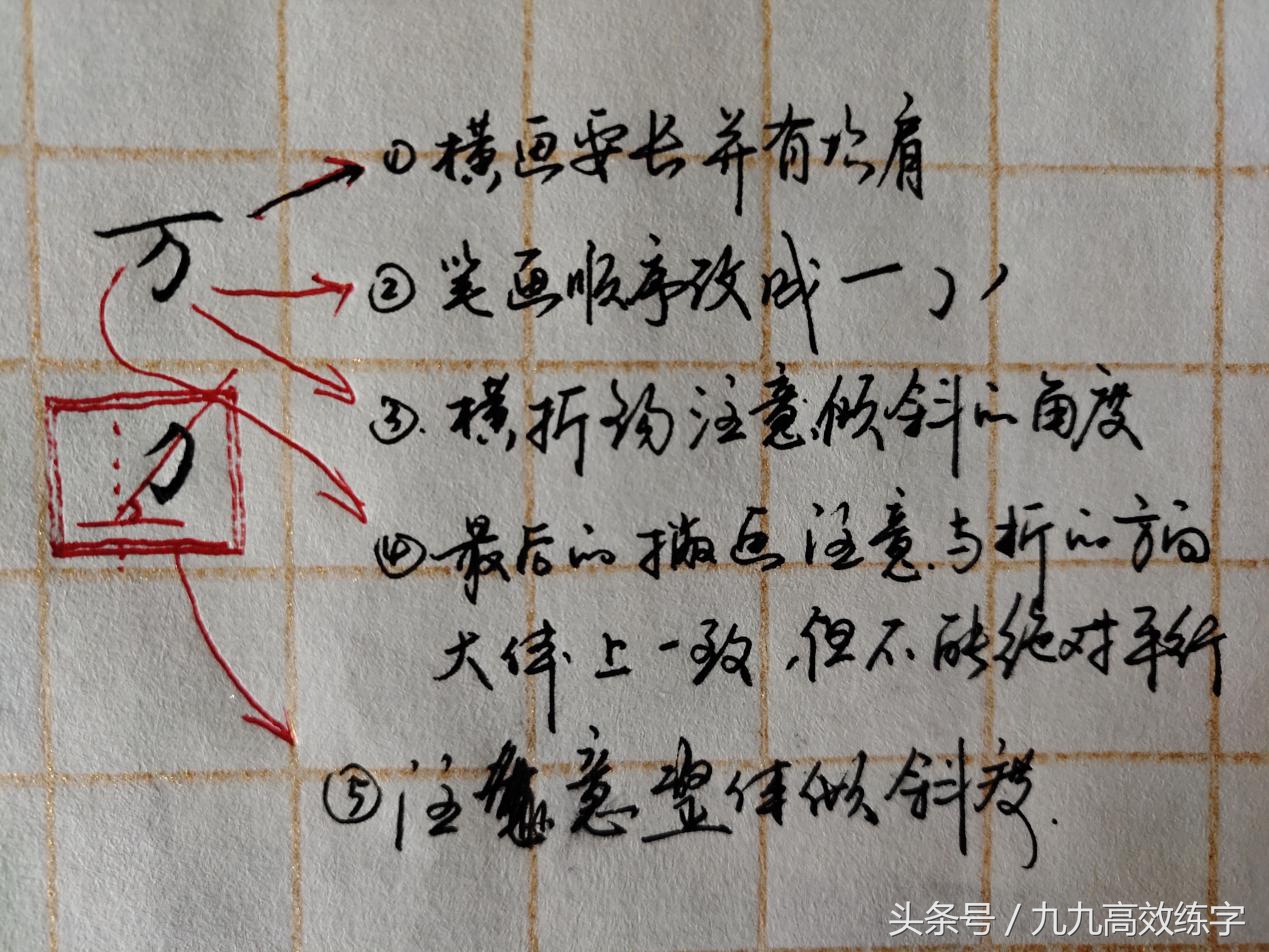 万
①横画要长并有抗肩
②笔画顺序改成一㇆丿
③.横折钩注意倾斜的角度
④最后的撇画注意与折的方向
大体上一致,但不能绝对平行
⑤注意整体倾斜度.
头条号/九九高效练字